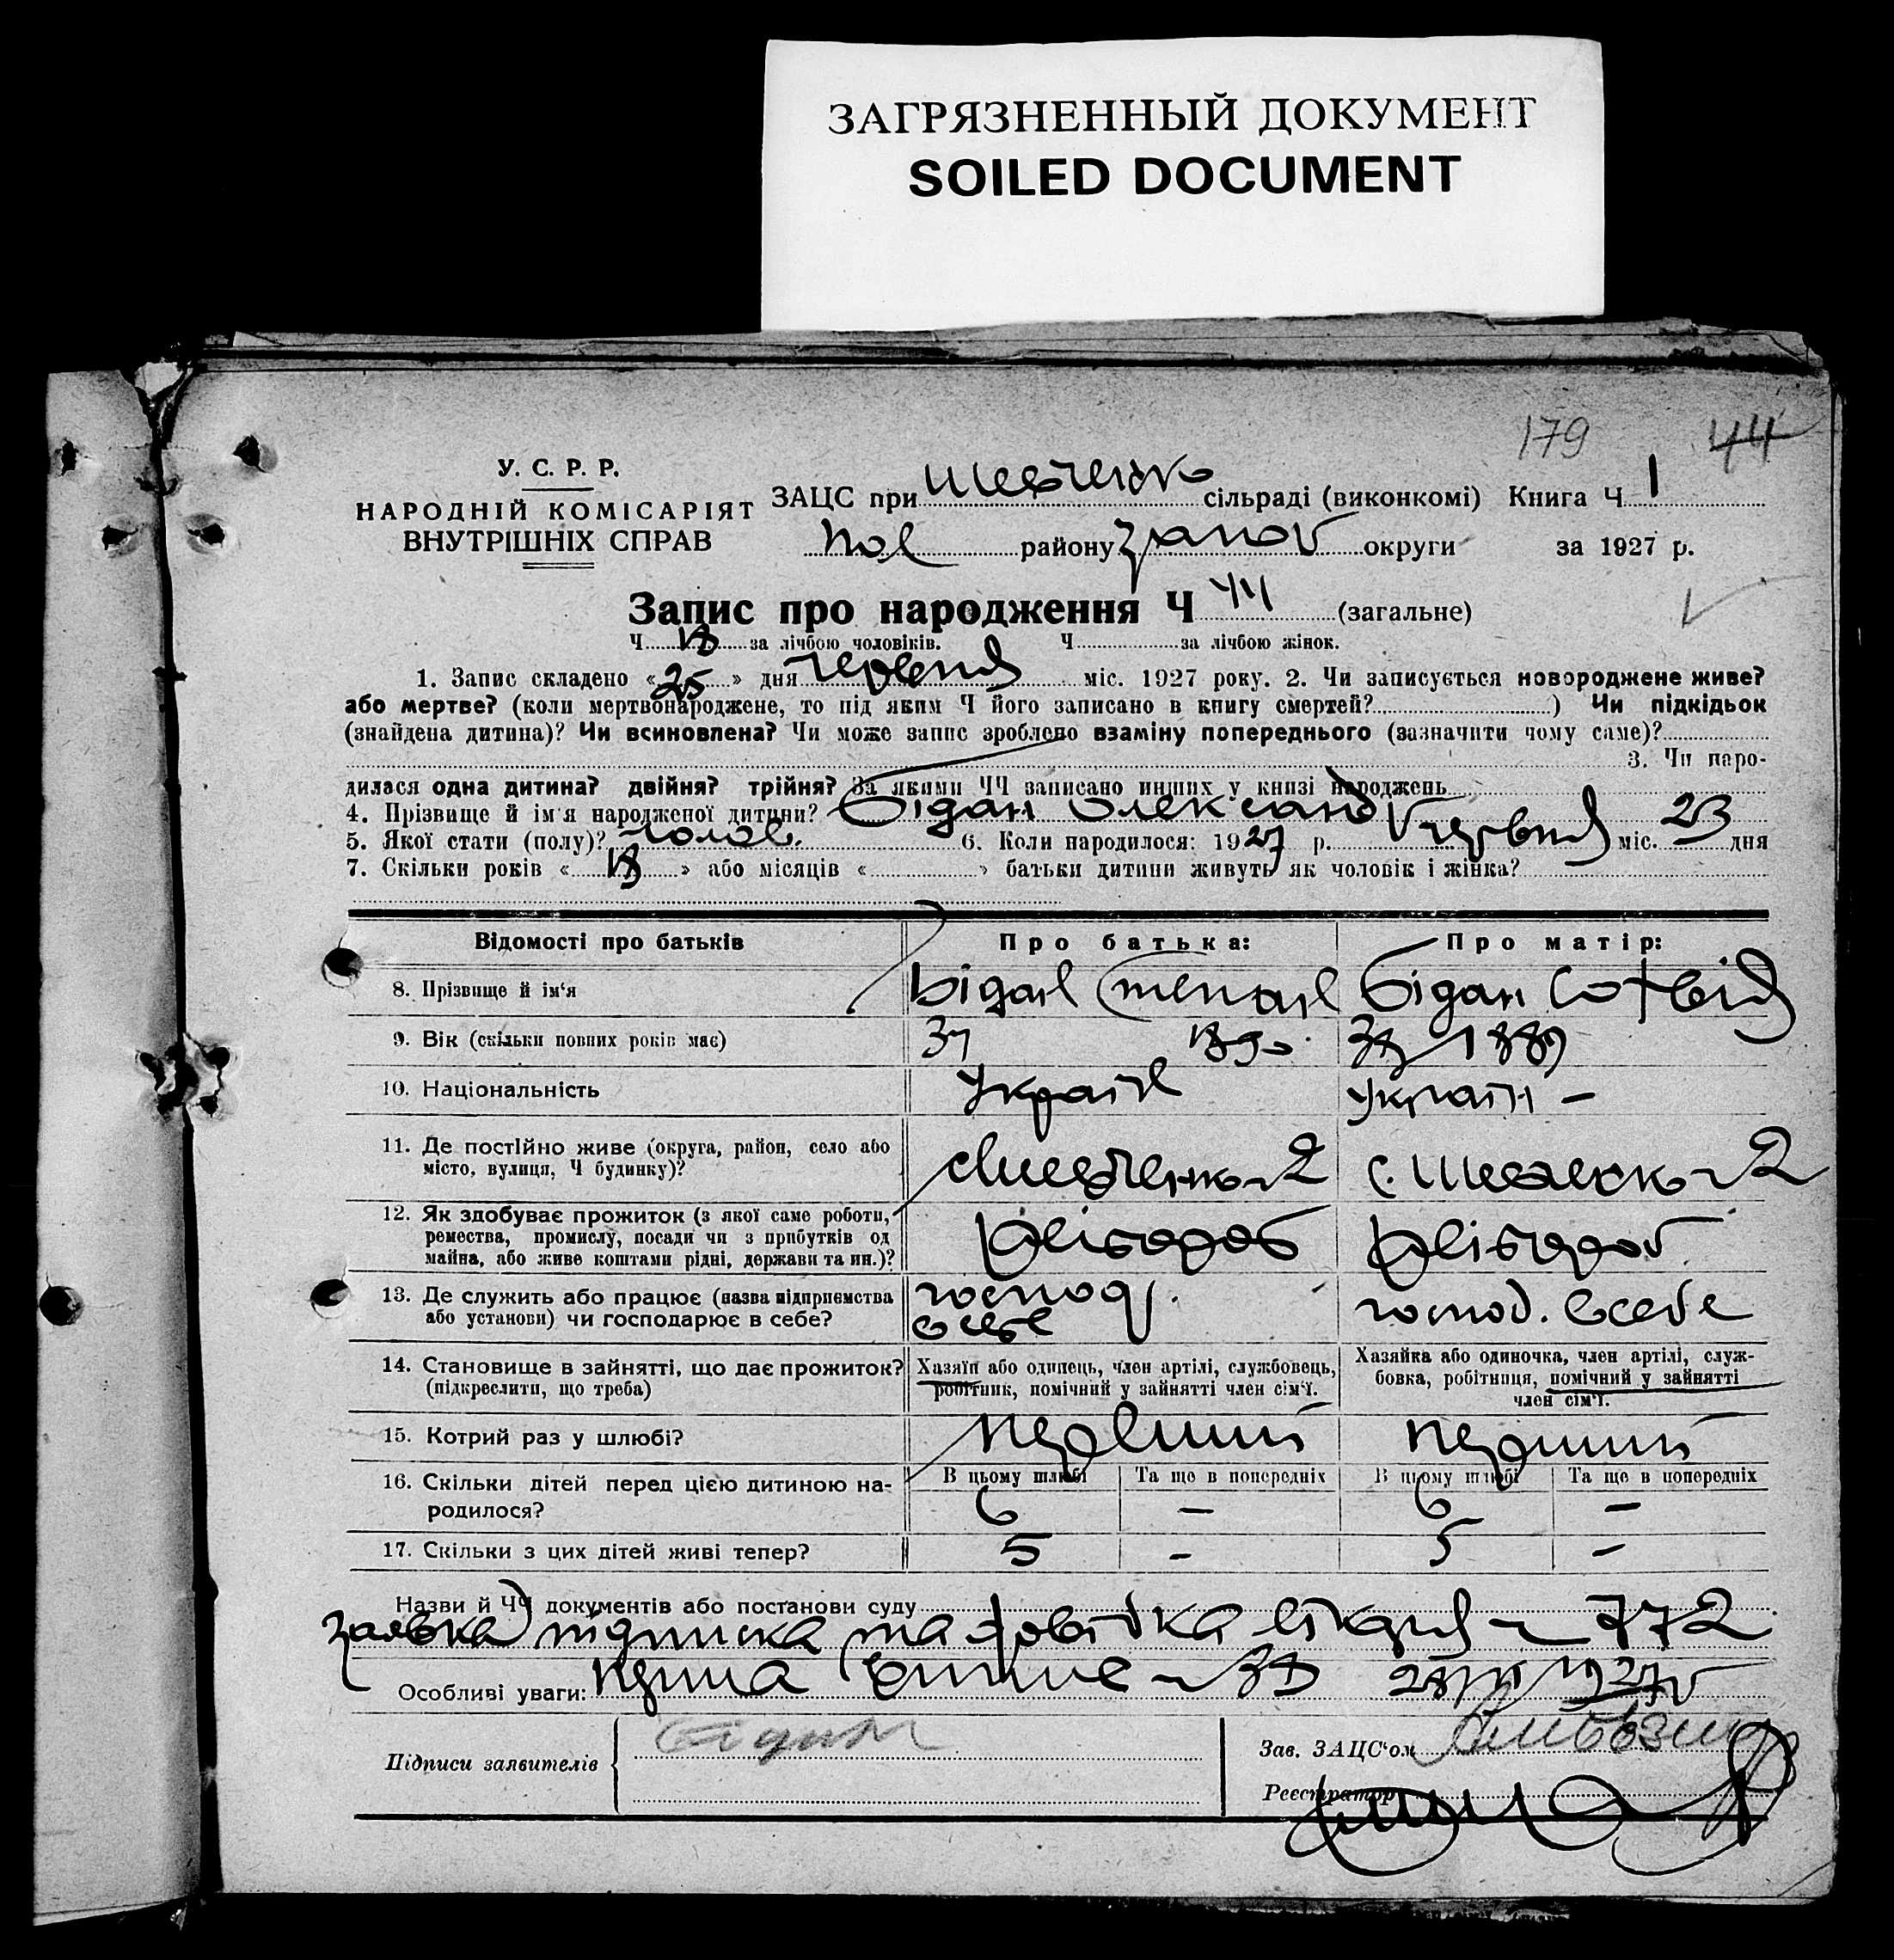 ЗАГРЯЗНЕННЫЙ ДОКУМЕНТ
SOILED DOCUMENT
179 44
У. С. Р. Р.
НАРОДНІЙ КОМІСАРІЯТ
ВНУТРІШНІХ СПРАВ
ЗАЦС при Шевченко сільраді (виконкомі) Книга Ч 1
Пол району Запов округи за 1927 р.
Запис про народження Ч 44 (загальне)
Ч за лічбою чоловіків. Ч за лічбою жінок.
1. Запис складено «25» дня червня міс. 1927 року. 2. Чи записується новороджене живе?
або мертве? (коли мертвонароджене, то під яким Ч його записано в книгу смертей? ) Чи підкідьок
(знайдена дитина)? Чи всиновлена? Чи може запис зроблено взаміну попереднього (зазначити чому саме)?
3. Чи наро-
дилася одна дитина? двійня? трійня? За якими ЧЧ записано инших у книзі народжень
4. Прізвище й ім'я народженої дитини? Бідан Олександ
5. Якої стати (полу)? чолов. 6. Коли народилося: 1927 р. червня міс. 23 дня
7. Скільки років « » або місяців « » батьки дитини живуть як чоловік і жінка?
Відомості про батьків Про батька: Про матір:
8. Прізвище й ім'я Бідан Степан Бідан Софія
9. Вік (скільки повних років має) 37 1890 38 1889
10. Національність Україн Україн —
11. Де постійно живе (округа, район, село або
місто, вулиця, Ч будинку)?
с Шевченко 2 с. Шевченко 2
12. Як здобуває прожиток (з якої саме роботи,
ремества, промислу, посади чи з прибутків од
майна, або живе коштами рідні, держави та ин.)?
хлібороб хлібороб
13. Де служить або працює (назва підприємства
або установи) чи господарює в себе?
господ.
в себе
господ. в себе
14. Становище в зайнятті, що дає прожиток?
(підкреслити, що треба)
Хазяїн або одинець, член артілі, службовець,
робітник, помічний у зайнятті член сім'ї.
Хазяйка або одиночка, член артілі, служ-
бовка, робітниця, помічний у зайнятті
член сім'ї.
15. Котрий раз у шлюбі? перший перший
16. Скільки дітей перед цією дитиною на-
родилося?
В цьому шлюбі Та ще в попередніх В цьому шлюбі Та ще в попередніх
6 — 6 —
17. Скільки з цих дітей живі тепер? 5 - 5 -
Назви й ЧЧ документів або постанови суду
Заявка підписка та довідка лікаря 772
Особливі уваги:
Підписи заявителів Бідан
Зав. ЗАЦС'ом
Реєстратор